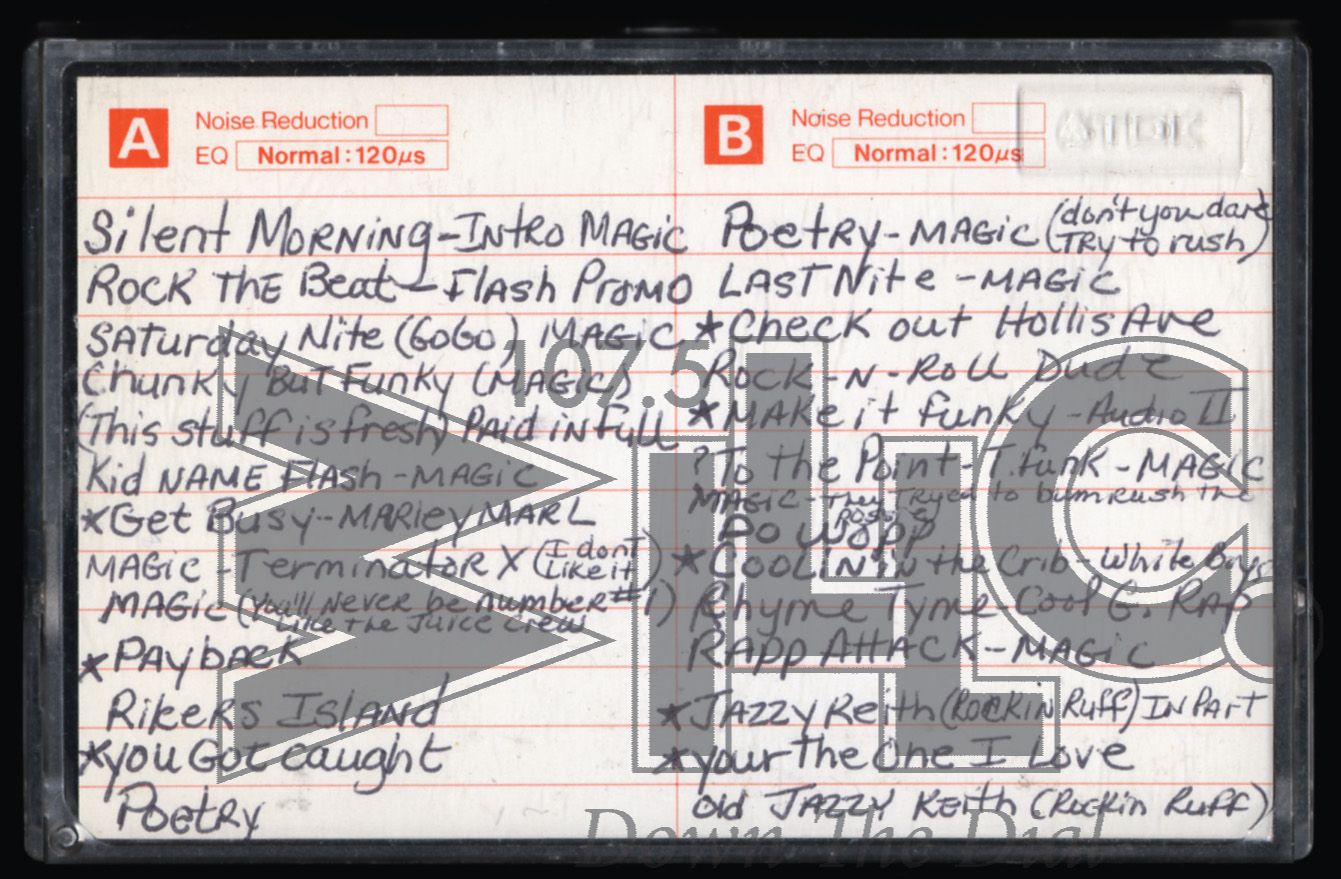 A Noise Reduction
EQ Normal : 120µs
Silent MORNiNg-INtRO MAGiC
ROCK THE Beat-Flash PrOMO
SATurday Nite (GoGo) MAGiC
Chunky BuT Funky (MAGiC)
(This stuff is fresh) PAid iN Full
Kid NAME Flash-MAGiC
*Get Busy-MARleyMARL
MAGiC-TerminatoR X (I don't Like it)
MAGiC (You'll NEVER be number #1)
Like The Juice Crew
*PAyback
RikeRs IsLAnd
*you Got caught
PoetRy
B Noise Reduction
EQ Normal : 120µs
PoetRy-MAGiC (don't you dare
TRy to rush)
LAST Nite-MAGiC
*Check out Hollis Ave
Rock-N-Roll Dude
*MAKe it funky-Audio II
?To the Point-T.Funk-MAGiC
MAGiC-They Tryed to bumrush the
Do Wopp
*COOLiN in the Crib-White Boys
Rhyme Tyme-Cool G. RAP
RApp AttACK-MAGiC
*JAzzy Keith (RocKiN Ruff) IN PArT
*your The One I Love
Old JAZZY Keith (Rockin Ruff)
107.5
WBLS
Down The Dial